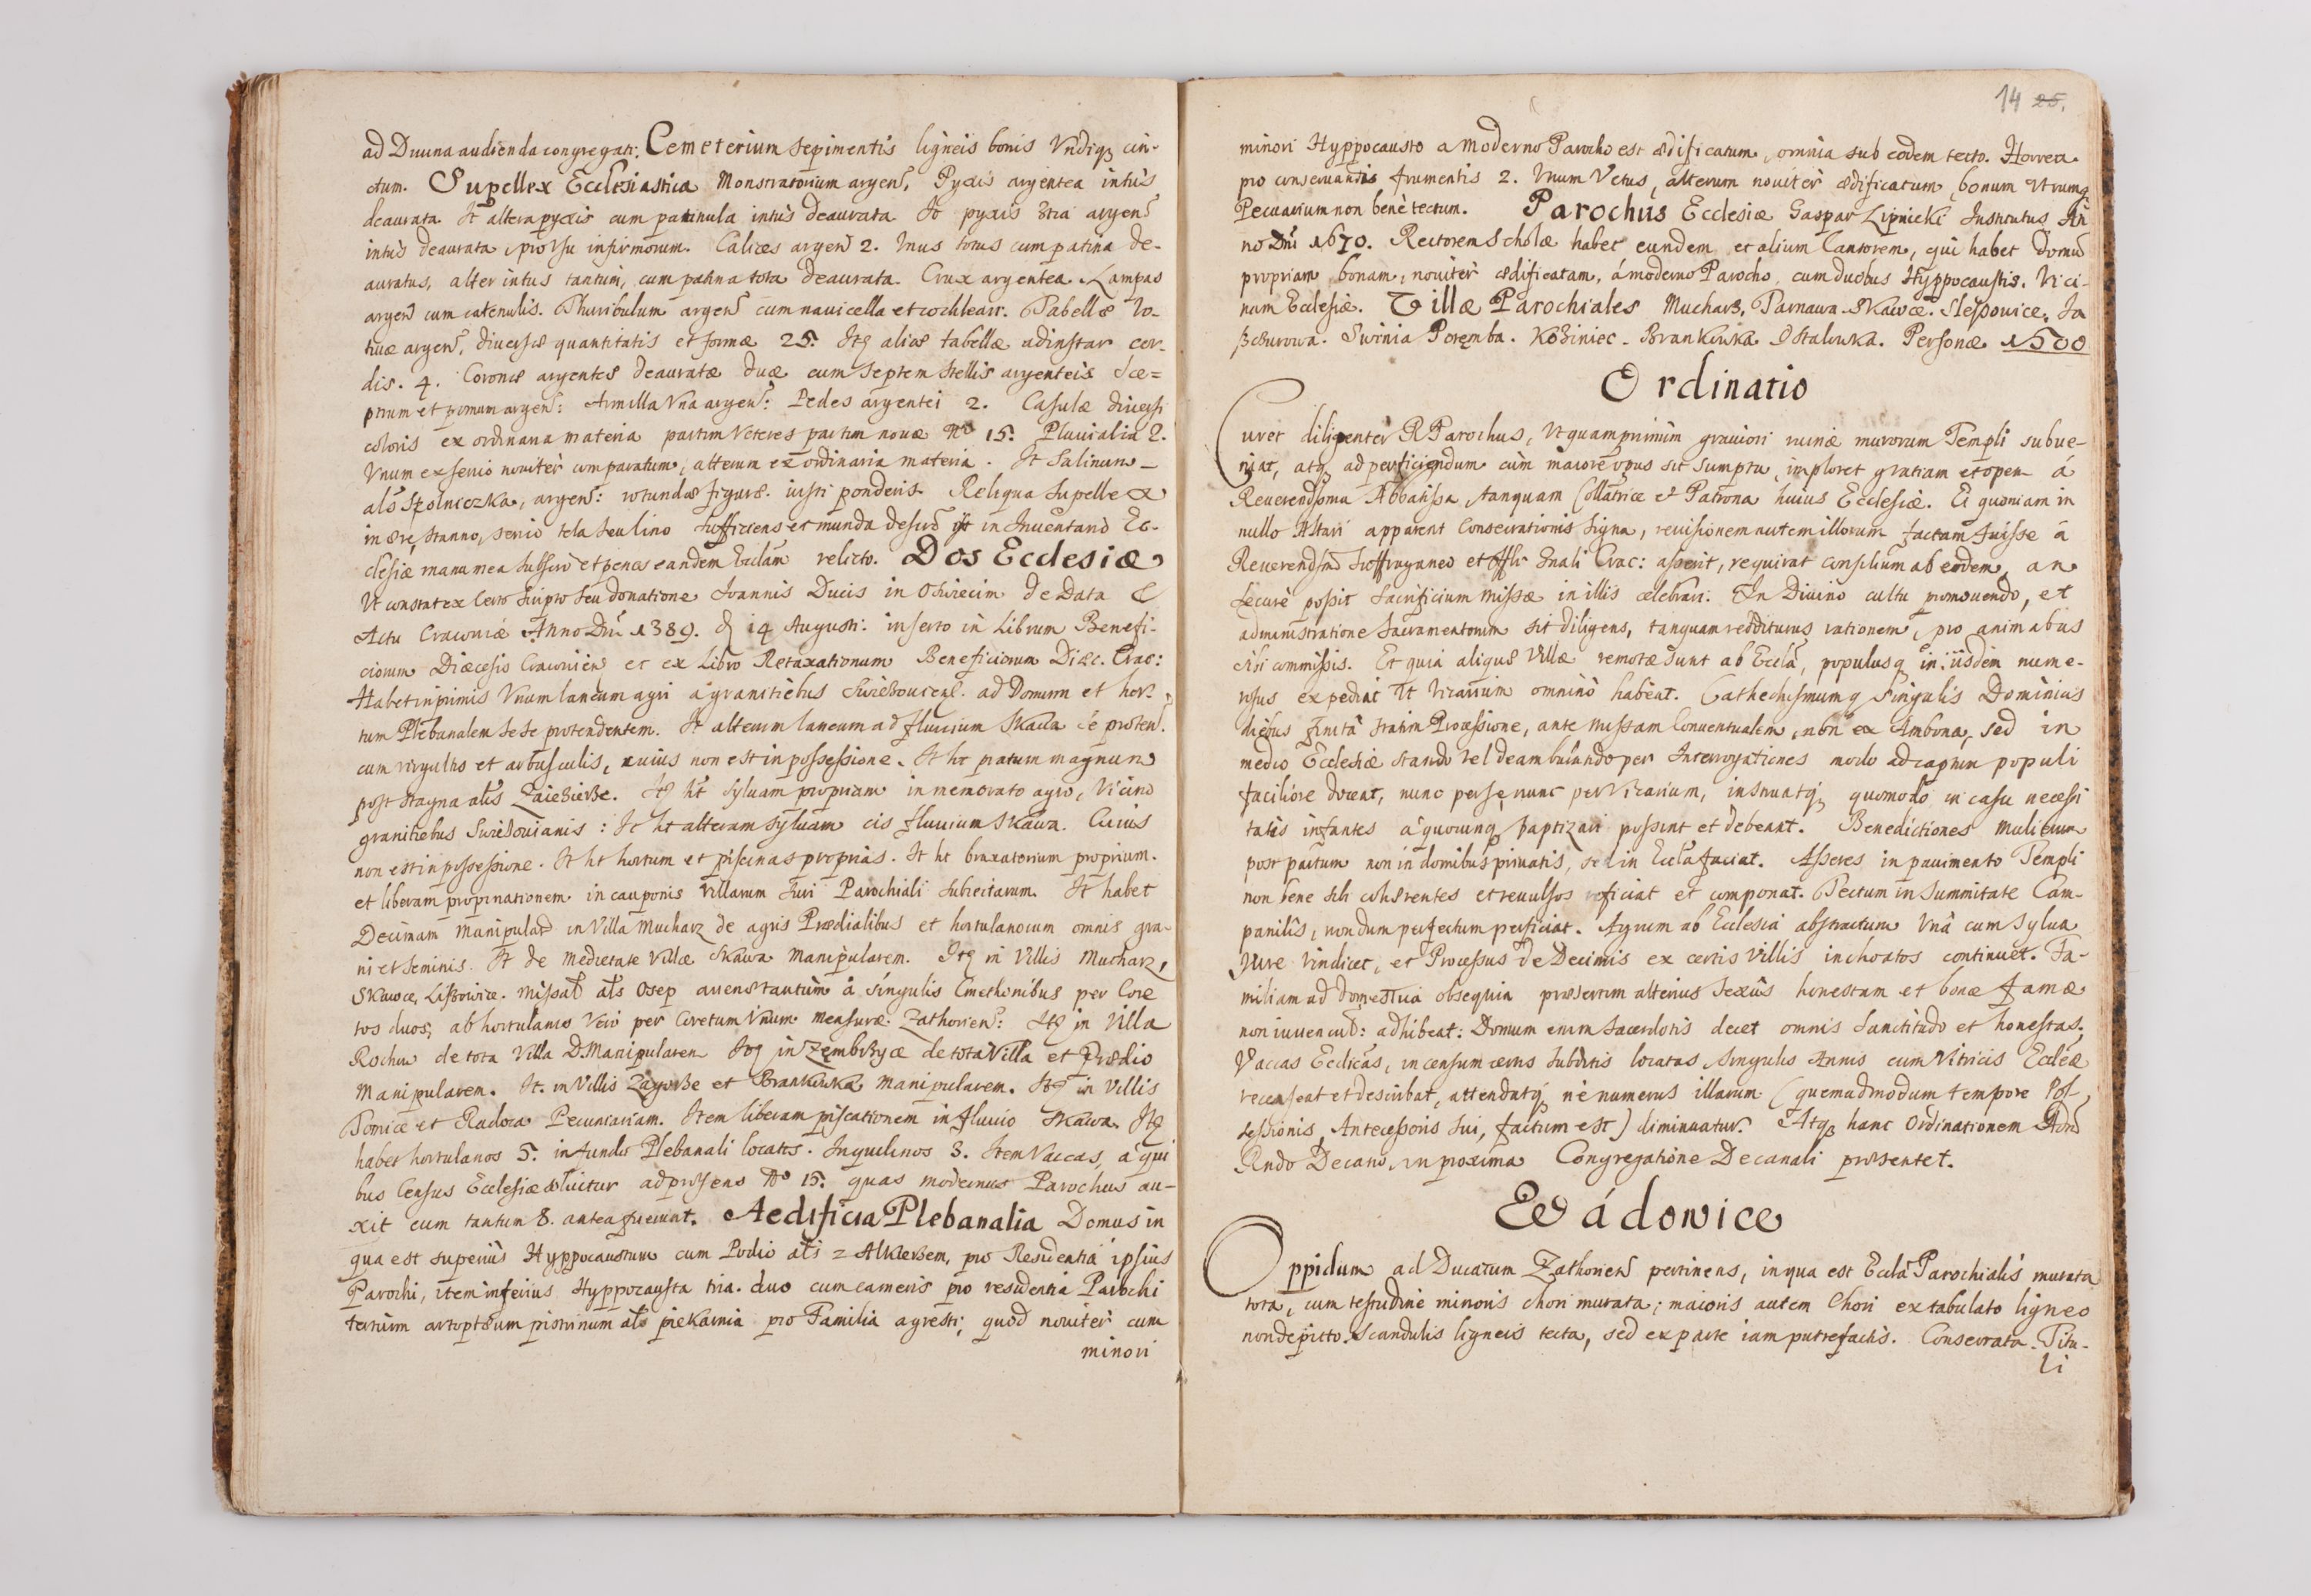 ad Diuina audienda congregati. Cemeterium sepimentis ligneis bonis Vndiq; cin-
ctum. Supellex Ecclesiastica Monstratorium argen: Pyxis argentea intùs
deaurata. It altera pyxis cum patinula intùs deaurata. It pyxis 3tia argen:
intùs deaurata pro Vsu infirmorum. Calices argen 2. Vnus totus cum patina de-
auratus, alter intus tantùm, cum patina tota deaurata. Crux argentea. Lampas
argen cum catenulis. Thuribulum argen cum nauicella et cochleari. Tabellæ Vo-
tiuæ argen, diuersæ quantitatis et formæ 25. Itq aliæ tabellæ adinstar cor-
dis. 4. Coronæ argenteæ deauratæ duæ cum septem stellis argenteis Sce=
ptrum et pomum argen: Armilla Vna argen: Pedes argentei 2. Casulæ diuersi
coloris ex ordinaria materia partim Veteres partim nouæ No 15. Pluuialia 2.
Vnum ex serio nouitèr comparatum, alterum ex ordinaria materia. It Salinum
als Szolniczka, argen: rotundæ figuræ iusti ponderis. Reliqua Supellex
in ære, stanno, serico tela seu lino sufficiens et munda descrò est in Inuentario Ec-
clesiæ manu mea subscro et penes eandem Ecclam relicto. Dos Ecclesiæ
Vt constat ex Certo Scripto seu donatione Ioannis Ducis in Oswiecim de Data &
Actu Cracouiæ Anno Dni 1389. d 14 Augusti: inserto in Librum Benefi-
ciorum Diæcesis Cracouien et ex Libro Retaxationum Beneficiorum Diæc. Crac:
Habet inprimis Vnum laneum agri à granitiebus ad Domum et hor-
tum Plebanalem sese protendentem. It alterum laneum ad fluuium Skawa se proten.
cum virgultis et arbusculis, cuius non est in possessione. It ht pratum magnum
post stagna als It ht syluam propriam in memorato agro, Vicino
granitiebus : It ht alteram syluam cis fluuium Skawa. Cuius
non est in possessione. It ht hortum et piscinas proprias. It ht braxatorium proprium.
et liberam propinationem in cauponis Villarum Iuri Parochiali subiectarum. It habet
Decimam Manipular in Villa Mucharz de agris Prædialibus et hortulanorum omnis gra-
ni et seminis. It de medietate Villæ Skawa Manipularem. Itq in Villis Mucharz,
Skawce, missal als Osep auenæ tantùm à singulis Cmethonibus per Core
tos duos, ab hortulanis Vero per Coretum Vnum mensuræ Zathorien: Itq in Villa
Rochw de tota Villa D. Manipularem Itq in Zembrzyce de tota Villa et Prædio
Manipularem. It. in Villis Zagorze et Brankowka Manipularem. Itq in Villis
Tomice et Radocza Pecuniariam. Item liberam piscationem in fluuio Skawa. Itq
habet hortulanos 5. in fundo Plebanali locatos. Inquilinos 3. Item Vaccas, à qui
bus Census Ecclesiæ soluitur ad præsens No 15. quas modernus Parochus au-
xit cum tantum 8. antea fuerunt. Aedificia Plebanalia Domus in
qua est superiùs Hyppocaustum cum Podio als z Alkierzem, pro Residentia ipsius
Parochi, item inferius Hyppocausta tria. duo cum cameris pro residentia Parochi
tertium artoptæum pistrinum als piekarnia pro Familia agresti, quod nouitèr cum
minori
14 25.
minori Hyppocausto a moderno Parocho est ædificatum, omnia sub eodem tecto. Horrea
pro conseruandis frumentis 2. Vnum Vetus, alterum nouitèr ædificatum, bonum Vtrumq;
Pecuarium non benè tectum. Parochus Ecclesiæ Gaspar Lipnicki Institutus An
no Dni 1670. Rectorem Scholæ habet eundem et alium Cantorem, qui habet Domũ
propriam bonam, nouitèr ædificatam, à moderno Parocho cum duobus Hyppocaustis. Vici-
nam Ecclesiæ. Villæ Parochiales Mucharz, Tarnawa. Skawce. Slessowice. Ia
szczurowa. Swinia Poremba. Koziniec. Brankowka. Ostalowka. Personæ 1500
Ordinatio
Curet diligenter R Parochus, Vt quamprimùm grauiori ruinæ murorum Templi subue-
niat, atq; ad perficiendum cùm maiore opus sit sumptu, imploret gratiam et opem à
Reuerendissima Abbatissa, tanquam Collatrice et Patrona huius Ecclesiæ. Et quoniam in
nullo Altari apparent Consecrationis signa, reuisionem autem illorum factam fuisse à
Reuerendsmo Suffraganeo et Offli Gnali Crac: asserit, requirat consilium ab eodem, an
securè possit Sacrificium Missæ in illis celebrari. In Diuino cultu promouendo, et
administratione Sacramentorum sit diligens, tanquam redditurus rationem, pro animabus
sibi commissis. Et quia aliquæ Villæ remotæ sunt ab Eccla, populusq in iisdem nume-
rosus expediat Vt Vicarium omninò habeat. Cathechismumq singulis Dominicis
diebus finita statim Processione, ante Missam Conuentualem, non ex Ambona, sed in
medio Ecclesiæ stando vel deambulando per Interrogationes modo ad captum populi
faciliore doceat, nunc per se, nunc per Vicarium, instruatq; quomodo in casu necessi
tatis infantes à quocunq baptizari possint et debeant. Benedictiones Mulierum
post partum non in domibus priuatis, sed in Eccla faciat. Asseres in pauimento Templi
non bene sibi cohærentes et reuulsos reficiat et componat. Tectum in Summitate Cam-
panilis, nondum perfectum perficiat. Agrum ab Ecclesia abstractum Vnà cum Sylua
Iure Vindicet, et Processus de Decimis ex certis Villis inchoatos continuet. Fa-
miliam ad domestica obsequia præsertim alterius Sexùs honestam et bonæ famæ
non iuuencul: adhibeat: Domum enim Sacerdotis decet omnis Sanctitudo et honestas.
Vaccas Ecclicas, in censum certis Subditis locatas, singulis Annis cum Vitricis Eccleæ
recenseat et describat, attendatq; ne numerus illarum (quemadmodum tempore Pos
sessionis, Antecessoris Sui, factum est) diminuatur. Atq; hanc Ordinationem Adm
Rndo Decano, in proxima Congregatione Decanali præsentet.
Wádowice
Oppidum ad Ducatum Zathorien pertinens, in qua est Eccla Parochialis murata
tota, cum testudine minoris chori murata; maioris autem Chori ex tabulato ligneo
non depicto. Scandulis ligneis tecta, sed ex parte iam putrefactis. Consecrata. Titu-
li